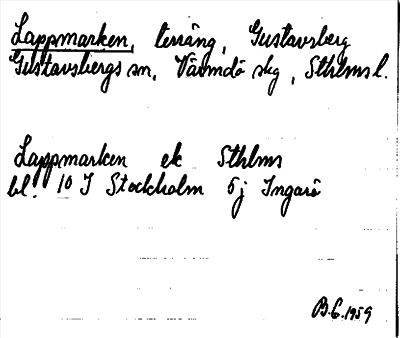 Lappmarken, terräng, Gustavsberg
Gustavsbergs sn, Värmdö skg, Sthlms l.
Lappmarken ek Sthlms
bl. 10 I Stockholm 5j Ingarö
B.G. 1959